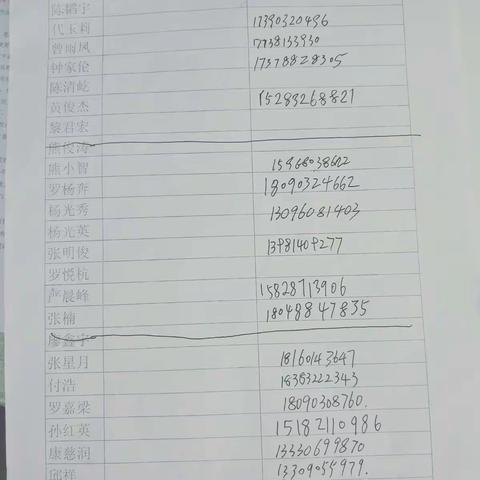 陈韬宇
代玉莉 17390320496
曾雨凤 7738133930
钟家伦 17378828305
陈清屹
黄俊杰 15283268821
黎君宏
熊俊涛
熊小智 15968038602
罗杨奔 18090324662
杨光秀 13096081403
杨光英
张明俊 13981409277
罗悦杭
严晨峰 15828713906
张楠 18048847835
廖鑫宇
张星月 18160143647
付浩 18383222343
罗嘉梁 18090308760.
孙红英 15182110986
康慈润 13330699870
邱样 13309055979.